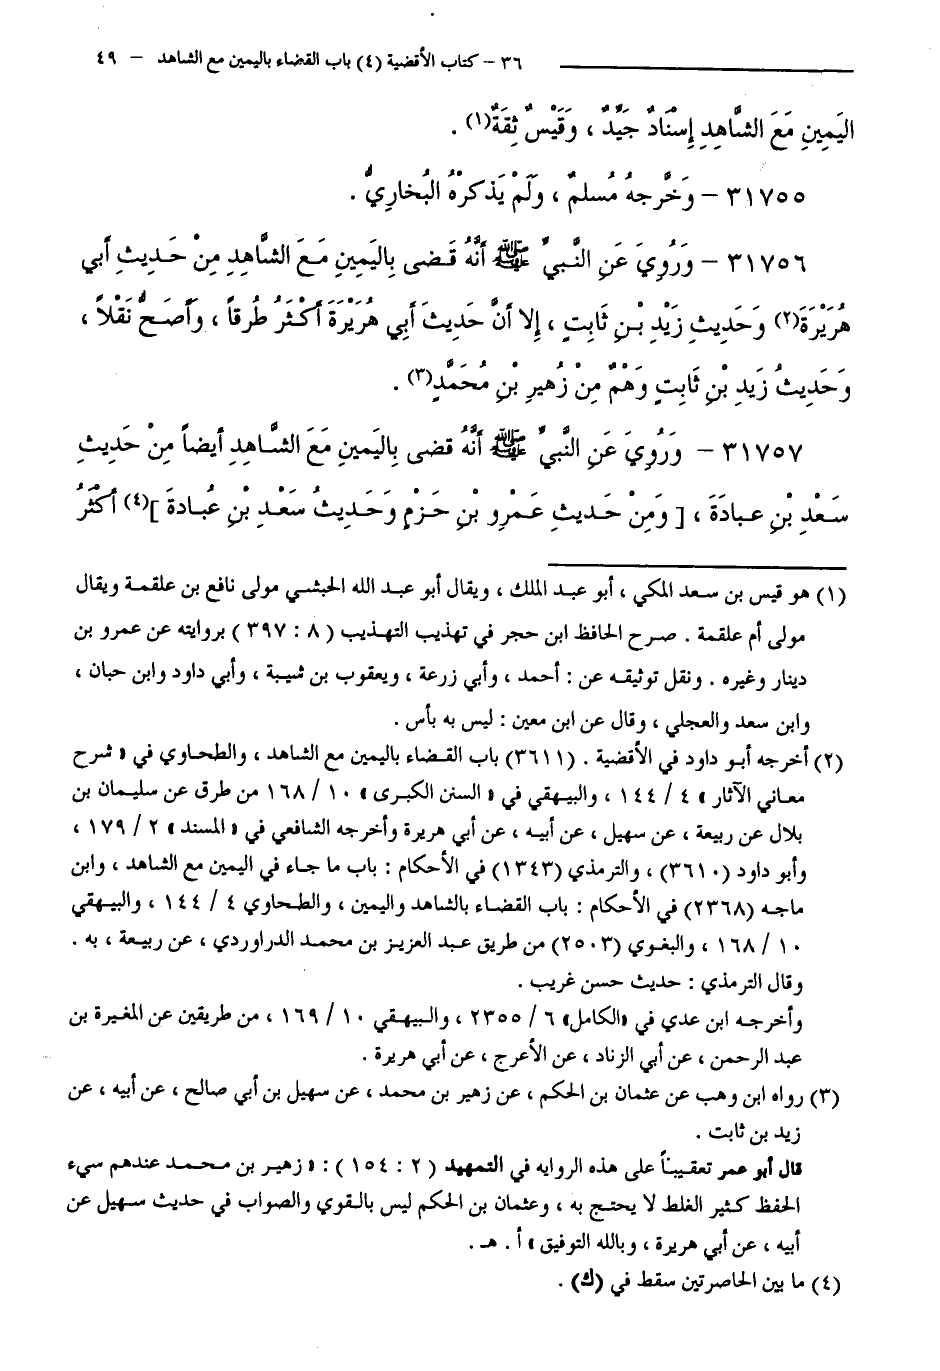 ٣٦ – كتاب الأقضية (٤) باب القضاء باليمين مع الشاهد – ٤٩
اليَمِينِ مَعَ الشَّاهِدِ إِسْنَادٌ جَيِّدٌ ، وَقَيْسٌ ثِقَةٌ(١) .
٣١٧٥٥ – وَخَّرجهُ مُسلمٌ ، ولَمْ يَذكرْهُ البُخاريُّ .
٣١٧٥٦ – وَرُوِيَ عَنِ النَّبيِّ ﷺ أَنَّهُ قَضى بِاليَمِينِ مَعَ الشَّاهِدِ مِنْ حَديثِ أبي
هُرَيْرَةَ(٢) وَحَديثِ زَيْدِ بْنِ ثَابتٍ ، إلا أنَّ حَديثَ أبي هُرَيْرَةَ أكْثَرُ طُرقاً ، وَأصَحُّ نَقْلاً ،
وَحَدِيثُ زَيدِ بْنِ ثَابتٍ وَهْمٌ مِنْ زُهيرِ بْنِ مُحَمَّدٍ(٣) .
٣١٧٥٧ – وَرُوِيَ عَنِ النَّبيِّ ﷺ أَنَّهُ قضى بِاليَمينِ مَعَ الشَّاهِدِ أيضاً مِنْ حَدِيثِ
سَعْدِ بْنِ عبادَةَ ، [ وَمِنْ حَديثِ عَمْرِو بْنِ حَزْمٍ وَحَديثُ سَعْدِ بْنِ عُبادةَ ](٤) أكْثَرُ
(١) هو قيس بن سعد المكي ، أبو عبد الملك ، ويقال أبو عبد الله الحبشي مولى نافع بن علقمة ويقال
مولى أم علقمة . صرح الحافظ ابن حجر في تهذيب التهذيب ( ٨ : ٣٩٧ ) بروايته عن عمرو بن
دينار وغيره . ونقل توثيقه عن : أحمد ، وأبي زرعة ، ويعقوب بن شيبة ، وأبي داود وابن حبان ،
وابن سعد والعجلي ، وقال عن ابن معين : ليس به بأس .
(٢) أخرجه أبو داود في الأقضية . (٣٦١١) باب القضاء باليمين مع الشاهد ، والطحاوي في « شرح
معاني الآثار » ٤ / ١٤٤ ، والبيهقي في « السنن الكبرى » ١٠ / ١٦٨ من طرق عن سليمان بن
بلال عن ربيعة ، عن سهيل ، عن أبيه ، عن أبي هريرة وأخرجه الشافعي في « المسند » ٢ / ١٧٩ ،
وأبو داود (٣٦١٠) ، والترمذي (١٣٤٣) في الأحكام : باب ما جاء في اليمين مع الشاهد ، وابن
ماجه (٢٣٦٨) في الأحكام : باب القضاء بالشاهد واليمين ، والطحاوي ٤ / ١٤٤ ، والبيهقي
١٠ / ١٦٨ ، والبغوي (٢٥٠٣) من طريق عبد العزيز بن محمد الدراوردي ، عن ربيعة ، به .
وقال الترمذي : حديث حسن غريب .
وأخرجه ابن عدي في «الكامل» ٦ / ٢٣٥٥ ، والبيهقي ١٠ / ١٦٩ ، من طريقين عن المغيرة بن
عبد الرحمن ، عن أبي الزناد ، عن الأعرج ، عن أبي هريرة .
(٣) رواه ابن وهب عن عثمان بن الحكم ، عن زهير بن محمد ، عن سهيل بن أبي صالح ، عن أبيه ، عن
زيد بن ثابت .
قال أبو عمر تعقيباً على هذه الروايه في التمهيد ( ٢ : ١٥٤ ) : « زهير بن محمد عندهم سيء
الحفظ كثير الغلط لا يحتج به ، وعثمان بن الحكم ليس بالقوي والصواب في حديث سهيل عن
أبيه ، عن أبي هريرة ، وبالله التوفيق » أ . هـ .
(٤) ما بين الحاصرتين سقط في (ك) .